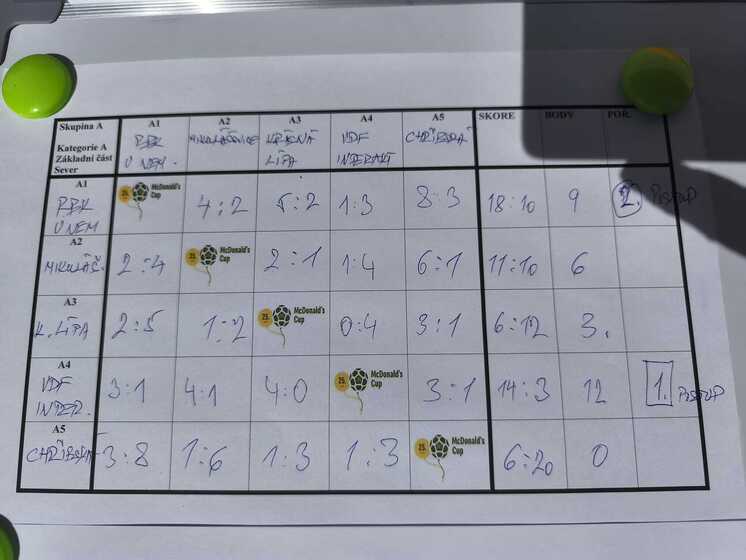 Skupina A
Kategorie A
Základní část
Sever
A1
PBK
V NEM.
A2
A3
KRÁSNÁ
LÍPA
A4
VDF
INTERAKT
A5
CHŘIBSKÁ
SKORE
BODY
POŘ.
A1
PBK
V NEM
25. McDonald's Cup
4:2
5:2
1:3
8:3
18:10
9
2. POSTUP
A2
MIKULÁŠ.
2:4
25. McDonald's Cup
2:1
1:4
6:1
11:10
6
A3
K. LÍPA
2:5
1:2
25. McDonald's Cup
0:4
3:1
6:12
3.
A4
VDF
INTER.
3:1
4:1
4:0
25. McDonald's Cup
3:1
14:3
12
1. POSTUP
A5
CHŘIBSKÁ
3:8
1:6
1:3
1:3
25. McDonald's Cup
6:20
0